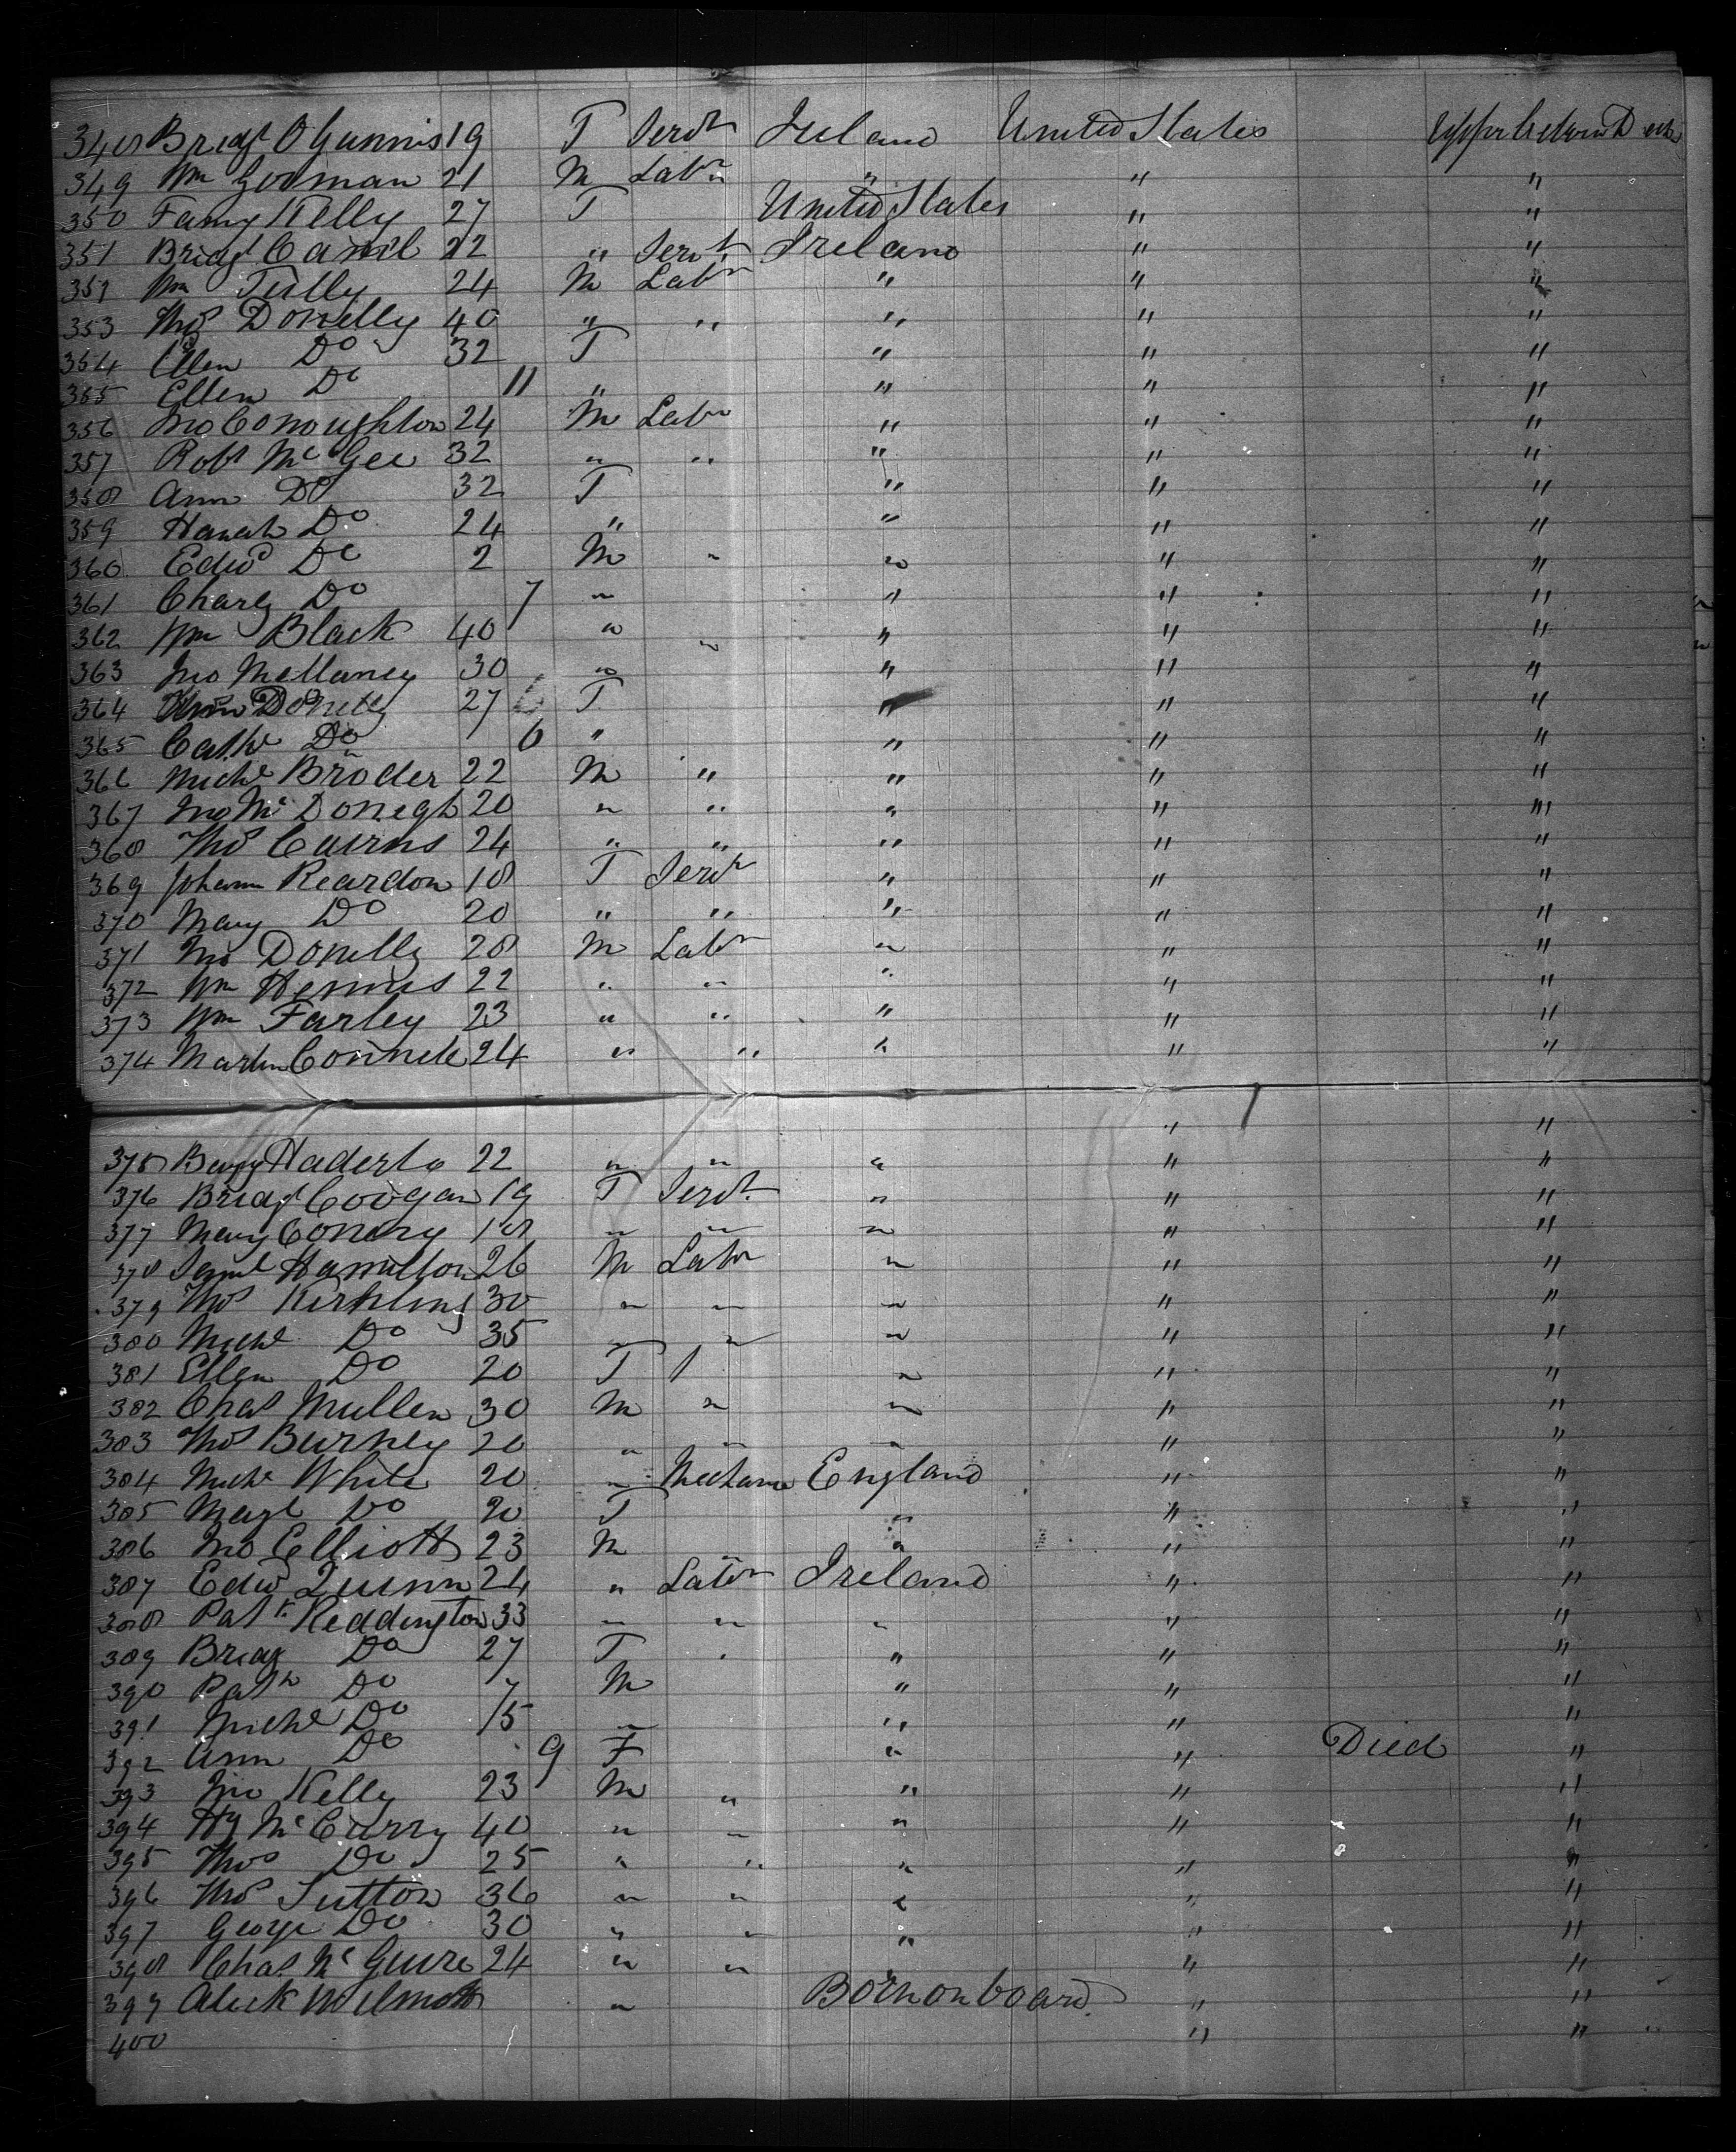 348 Bridgt O Gunnis 19 F Servt Ireland United States Upper between Decks
349 Wm Gorman 21 M Labr " " "
350 Fanny Kelly 27 F United States " "
351 Bridgt Carroll 22 " Servt Ireland " "
352 Wm Tully 24 M Labr " " "
353 Thos Donelly 40 " " " " "
354 Ellen Do 32 F " " "
355 Ellen Do 11 " " " "
356 Jno Conoughton 24 M Labr " " "
357 Robt McGee 32 " " " " "
358 Ann Do 32 F " " "
359 Hanah Do 24 " " " "
360 Edwd Do 2 M " " " "
361 Charls Do 7 " " " "
362 Wm Black 40 " " " " "
363 Jno 30 " " " "
364 Donelly 27 F " " "
365 Cathe Do 6 " " " "
366 Michl Broder 22 M " " " "
367 Jno McDonegh 20 " " " " "
368 Thos Cairns 24 " " " " "
369 Johann Reardon 18 F Servt " " "
370 Mary Do 20 " " " " "
371 Jno Donelly 28 M Labr " " "
372 Wm 22 " " " " "
373 Wm Farley 23 " " " " "
374 Martin Connell 24 " " " " "
" "
375 22 " " " " "
376 Bridgt Coogan 19 F Servt " " "
377 Mary Conery 18 " " " " "
378 Saml Hamilton 26 M Labr " " "
379 Thos 30 " " " " "
380 Michl Do 35 " " " " "
381 Ellen Do 20 F " " "
382 Chas Mullen 30 M " " " "
383 Thos Burney 20 " " " " "
384 Michl White 20 " Mechanic England " "
385 Margt Do 20 F " " "
386 Jno Elliott 23 M " " "
387 Edwd Quinn 24 " Labr Ireland " "
388 Patk Reddington 33 " " " " "
389 Bridg Do 27 F " " "
390 Patk Do 7 M " " "
391 Michl Do 15 " " " "
392 Ann Do 9 F " " Died "
393 Jno Kelly 23 M " " " "
394 Hy McCurry 40 " " " " "
395 Thos Do 25 " " " " "
396 Thos Sutton 36 " " " " "
397 George Do 30 " " " " "
398 Chas McGuire 24 " " " " "
399 Aleck Wilmott " Born on board. " "
400 " "